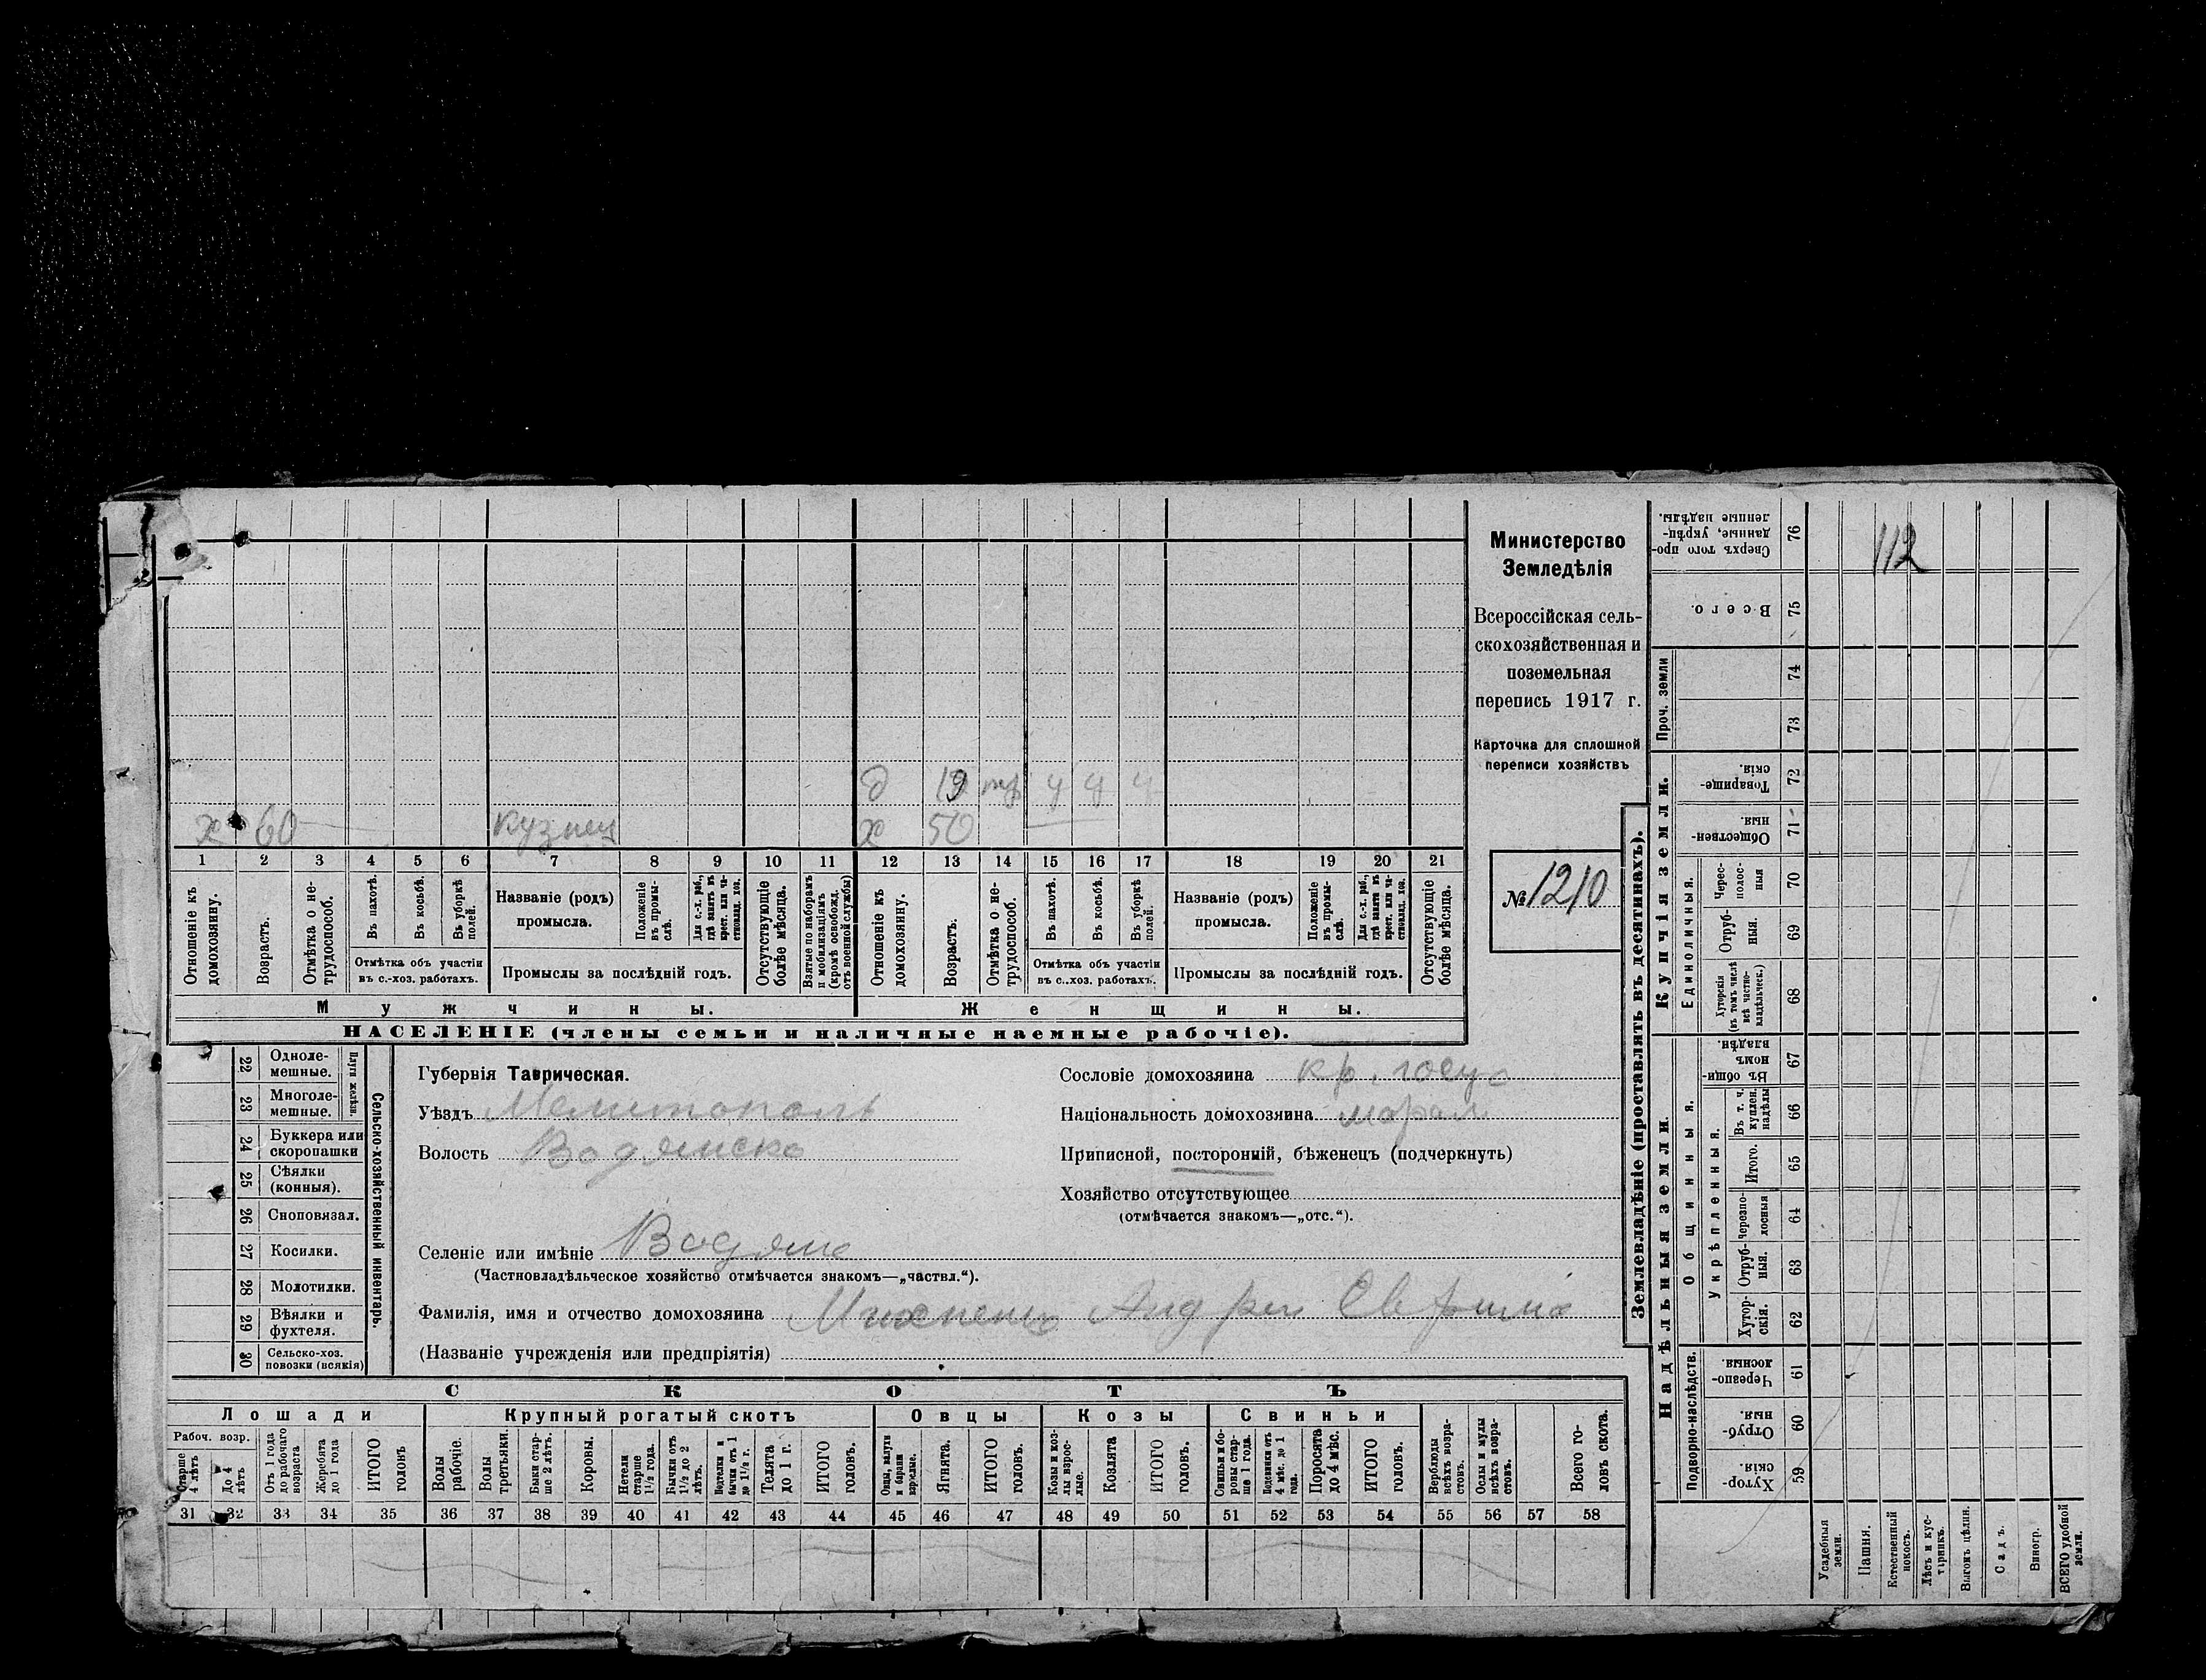 Министерство
Земледѣлія
Всероссійская сель-
скохозяйственная и
поземельная
перепись 1917 г.
Карточка для сплошной
переписи хозяйствъ
№ 1210
112
д 19 тр ч ч ч
х 60 кузнец х 50
1 2 3 4 5 6 7 8 9 10 11 12 13 14 15 16 17 18 19 20 21
Отношеніе къ домохозяину.
Возрастъ.
Отмѣтка о не-трудоспособ.
Въ пахотѣ.
Въ косьбѣ.
Въ уборкѣ полей.
Отмѣтка объ участіи
въ с.-хоз. работахъ.
Названіе (родъ)
промысла.
Положеніе въ промы-слѣ.
Для с.-х. раб., гдѣ занятъ въ крест. или ча-стновлад. хоз.
Промыслы за послѣдній годъ.
Отсутствующіе болѣе мѣсяца.
Взятые по наборамъ и мобилизаціямъ (кромѣ освобожд. отъ военной службы)
Отношеніе къ домохозяину.
Возрастъ.
Отмѣтка о не-трудоспособ.
Въ пахотѣ.
Въ косьбѣ.
Въ уборкѣ полей.
Отмѣтка объ участіи
въ с.-хоз. работахъ.
Названіе (родъ)
промысла.
Положеніе въ промы-слѣ.
Для с.-х. раб., гдѣ занята въ крест. или ча-стновлад. хоз.
Промыслы за послѣдній годъ.
Отсутствующіе болѣе мѣсяца.
Мужчины. Женщины.
НАСЕЛЕНІЕ (члены семьи и наличные наемные рабочіе).
22 Одноле-мешные.
23 Многоле-мешные.
Плуги желѣзн.
24 Буккера или скоропашки
25 Сѣялки (конныя).
26 Сноповязал.
27 Косилки.
28 Молотилки.
29 Вѣялки и фухтеля.
30 Сельско-хоз. повозки (всякія)
Сельско-хозяйственный инвентарь.
Губернія Таврическая.
Уѣздъ Мелитополь
Волость Водянско
Сословіе домохозяина кр. госуд
Національность домохозяина
Приписной, посторонній, бѣженецъ (подчеркнуть)
Хозяйство отсутствующее
(отмѣчается знакомъ—„отс.“).
Селеніе или имѣніе Водяно
(Частновладѣльческое хозяйство отмѣчается знакомъ—„частвл.“).
Фамилія, имя и отчество домохозяина Андрей
(Названіе учрежденія или предпріятія)
СКОТЪ
Лошади Крупный рогатый скотъ Овцы Козы Свиньи
Рабоч. возр.
Старше 4 лѣтъ
До 4 лѣтъ
Отъ 1 года до рабочаго возраста
Жеребята до 1 года
ИТОГО головъ
Волы рабочіе.
Волы третьяки.
Быки стар-ше 2 лѣтъ.
Коровы.
Нетели старше 1½ года.
Бычки отъ 1½ до 2 лѣтъ.
Подтелки и бычки отъ 1 до 1½ г.
Телята до 1 г.
ИТОГО головъ.
Овцы, валухи и бараны взрослые.
Ягнята.
ИТОГО головъ.
Козы и коз-лы взрос-лые.
Козлята
ИТОГО головъ.
Свиньи и бо-ровы стар-ше 1 года.
Подсвинки отъ 4 мѣс. до 1 года.
Поросята до 4 мѣс.
ИТОГО головъ.
Верблюды всѣхъ возра-стовъ.
Ослы и мулы всѣхъ возра-стовъ.
Всего го-ловъ скота.
31 32 33 34 35 36 37 38 39 40 41 42 43 44 45 46 47 48 49 50 51 52 53 54 55 56 57 58
Землевладѣніе (проставлять въ десятинахъ).
Надѣльныя земли. Купчія земли.
Подворно-наслѣдств.
Общинныя.
Укрѣпленныя.
Единоличныя.
Проч. земли
Хутор-скія. 59
Отруб-ныя. 60
Черезпо-лосныя. 61
Хутор-скія. 62
Отруб-ныя. 63
Черезпо-лосныя 64
Итого. 65
Въ т. ч. куплен. надѣлы 66
Въ общи-номъ владѣн. 67
Хуторскія (въ томъ числѣ всѣ частно-владѣльческ.) 68
Отруб-ныя. 69
Черес-полос-ныя 70
Обществен-ныя 71
Товарище-скія. 72
73
74
Всего. 75
Сверхъ того про-данные, укрѣп-ленные надѣлы. 76
Усадебныя земли.
Пашня.
Естественный покосъ.
Лѣсъ и кус-тарникъ.
Выгонъ цѣлин.
Садъ.
Виногр.
ВСЕГО удобной земли.